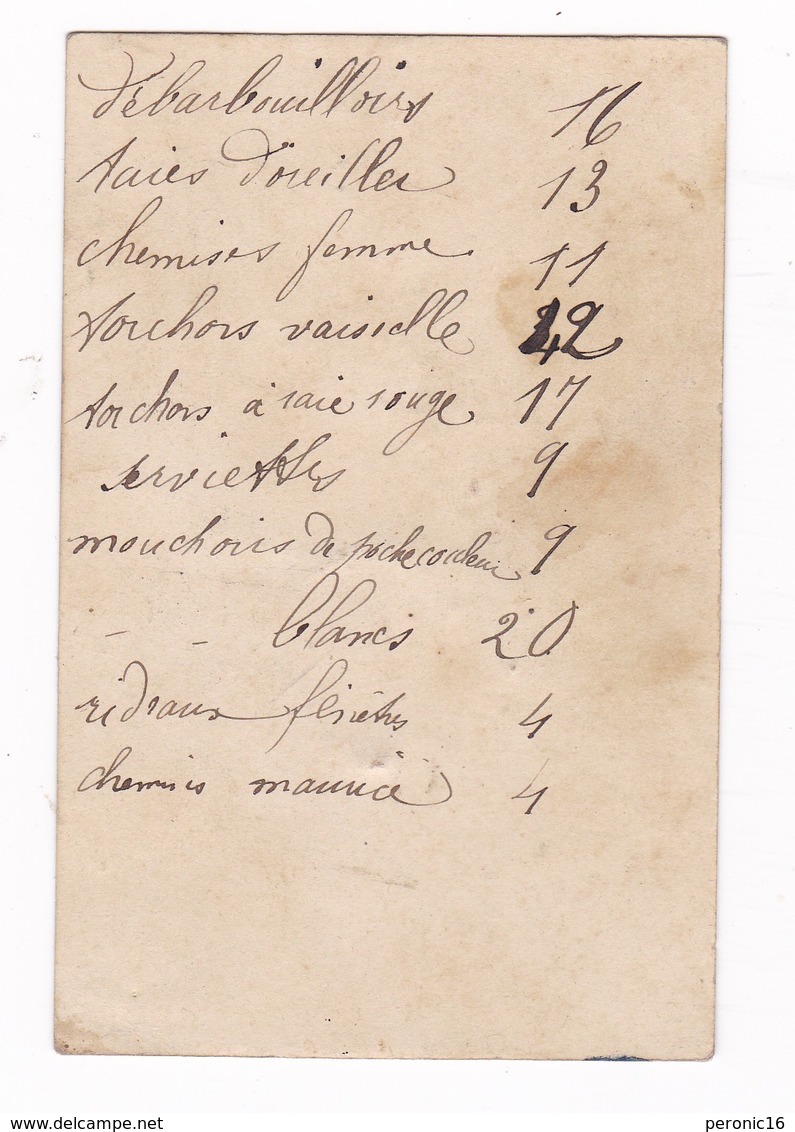 débarbouilloirs 16
taies d'oreiller 13
chemises femme 11
torchons vaisselle 22
torchons à raie rouge 17
serviettes 9
mouchoirs de poche couleur 9
- - blancs 20
rideaux fenêtres 4
chemises maurice 4
www.delcampe.net
peronic16